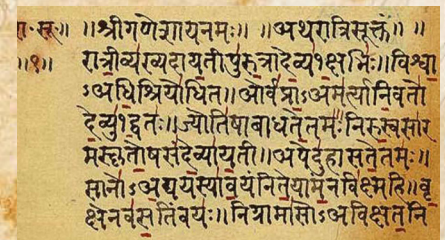 रा॰सू॥ ॥श्रीगणेशायनमः॥ ॥अथरात्रिसूक्तं॥ ॥
॥१॥ रात्रीव्यख्यदायतीपुरुत्रादेव्य१क्षभिः॥विश्वा
ऽअधिश्रियोधित॥ओर्वप्राऽअमर्त्यानिवतो
देव्यु१द्वतः॥ज्योतिषाबाधतेतमः॥निरुस्वसार
मस्कृतोषसंदेव्यायती॥अपेदुहासतेतमः॥
सानोऽअद्ययस्यावयंनितेयामन्नविक्ष्महि॥वृ
क्षेनवसतिंवयः॥निग्रामासोऽअविक्षतनि